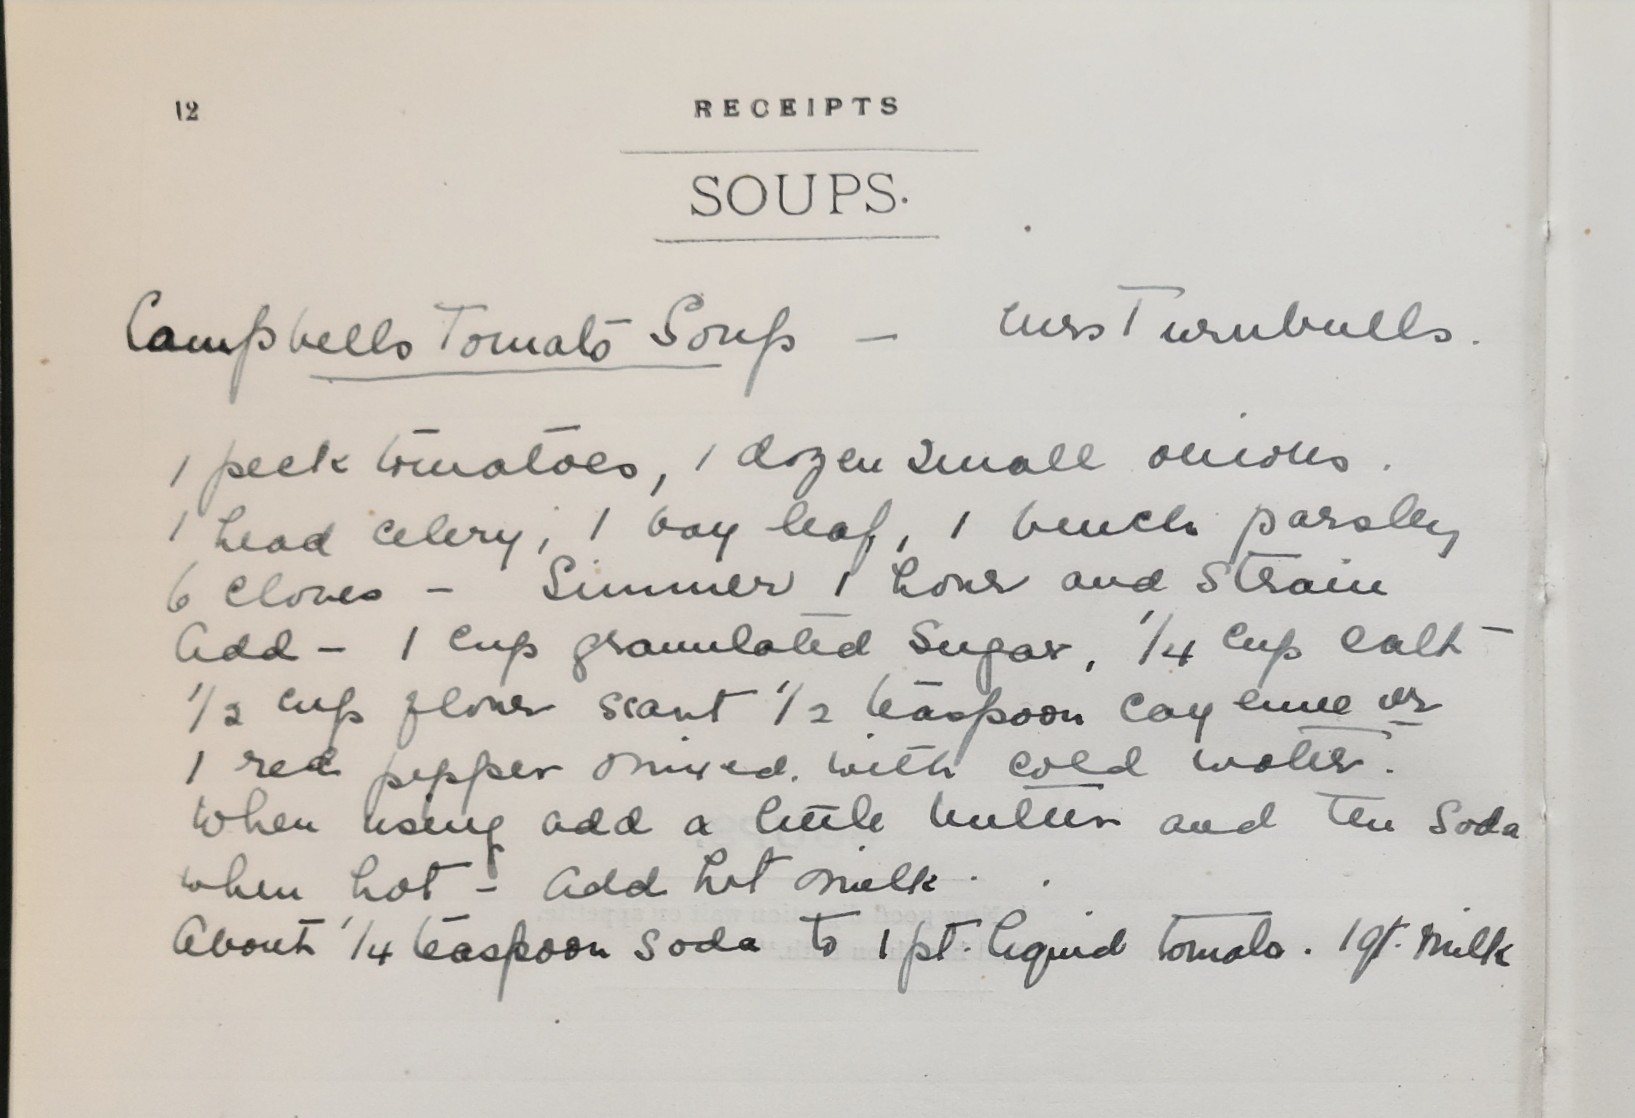 12
RECEIPTS
SOUPS.
Campbells Tomato Soup — Mrs Turnbulls.
1 peck tomatoes, 1 dozen small onions.
1 head celery, 1 bay leaf, 1 bunch parsley
6 cloves - Simmer 1 hour and strain
Add - 1 cup granulated sugar, 1/4 cup salt
1/2 cup flour scant 1/2 teaspoon cayenne or
1 red pepper mixed with cold water.
When using add a little butter and ten soda
when hot - add hot milk.
About 1/4 teaspoon soda to 1 pt. liquid tomato. 1 qt. milk